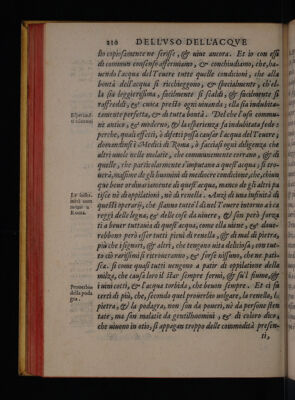 210 DELL'VSO DELL'ACQVE
sto copiosamente ne scrisse, & uiue ancora. Et io con essi
di commun consenso affermiamo, & conchiudiamo, che, ha-
uendo l'acqua del Teuere tutte quelle condicioni, che alla
bontà dell'acqua si ricchieggono, & spetialmente, ch'el-
la sia leggierissima, facilmente si scaldi, & facilmente si
raffreddi, & cuoca presto ogni uiuanda; ella sia indubita-
tamente perfetta, & di tutta bontà. Del che l'uso commu-
ne antico, & moderno, & la esperienza fa indubitata fede:
perche, quali effetti, ò difetti possa causar l'acqua del Teuere,
domandinsi i Medici di Roma, & facciasi ogni diligenza che
altri uuole nelle malatie, che communemente correno, & di
quelle, che particolarmente s'imputano a quest'acqua; si tro-
uerà, massime de gli huomini di mediocre condicione, che, chiun
que beue ordinariamente di quest'acqua, manco de gli altri pa
tisce nè di oppilationi, nè di renelle. Anzi di una infinità di
questi operarij, che stanno tutto'l dì nel Teuere intorno a i ca
reggi delle legna, & delle cose da uiuere, & son però forza
ti a beuer tuttauia di quest'acqua, come ella uiene, & do ue-
rebbono però esser tutti pieni di renella, & di mal di pietra,
più che i signori, & altri, che tengono uita deliciosa, con tut-
to ciò rarissimi si ritroueranno, & forse nissuno, che ne pati-
sca. sì come quasi tutti uengono a patir di oppilatione della
milza, che causa loro il star sempre fermi, & su'l fiume, &
i uini cotti, & l'acqua torbida, che beuon sempre. Et di su
certi di più, che, secondo quel prouerbio uolgare, la renella, la
pietra, & la podagra, non son da poueri, nè da persone sten
tate, ma son malatie da gentilhuomini, & di coloro dico,
che uiuono in otio, si appagan troppo delle commodità presen-
ti,
Esperienza
d'alcuni
Roma.
Prouerbio
della poda
gra.